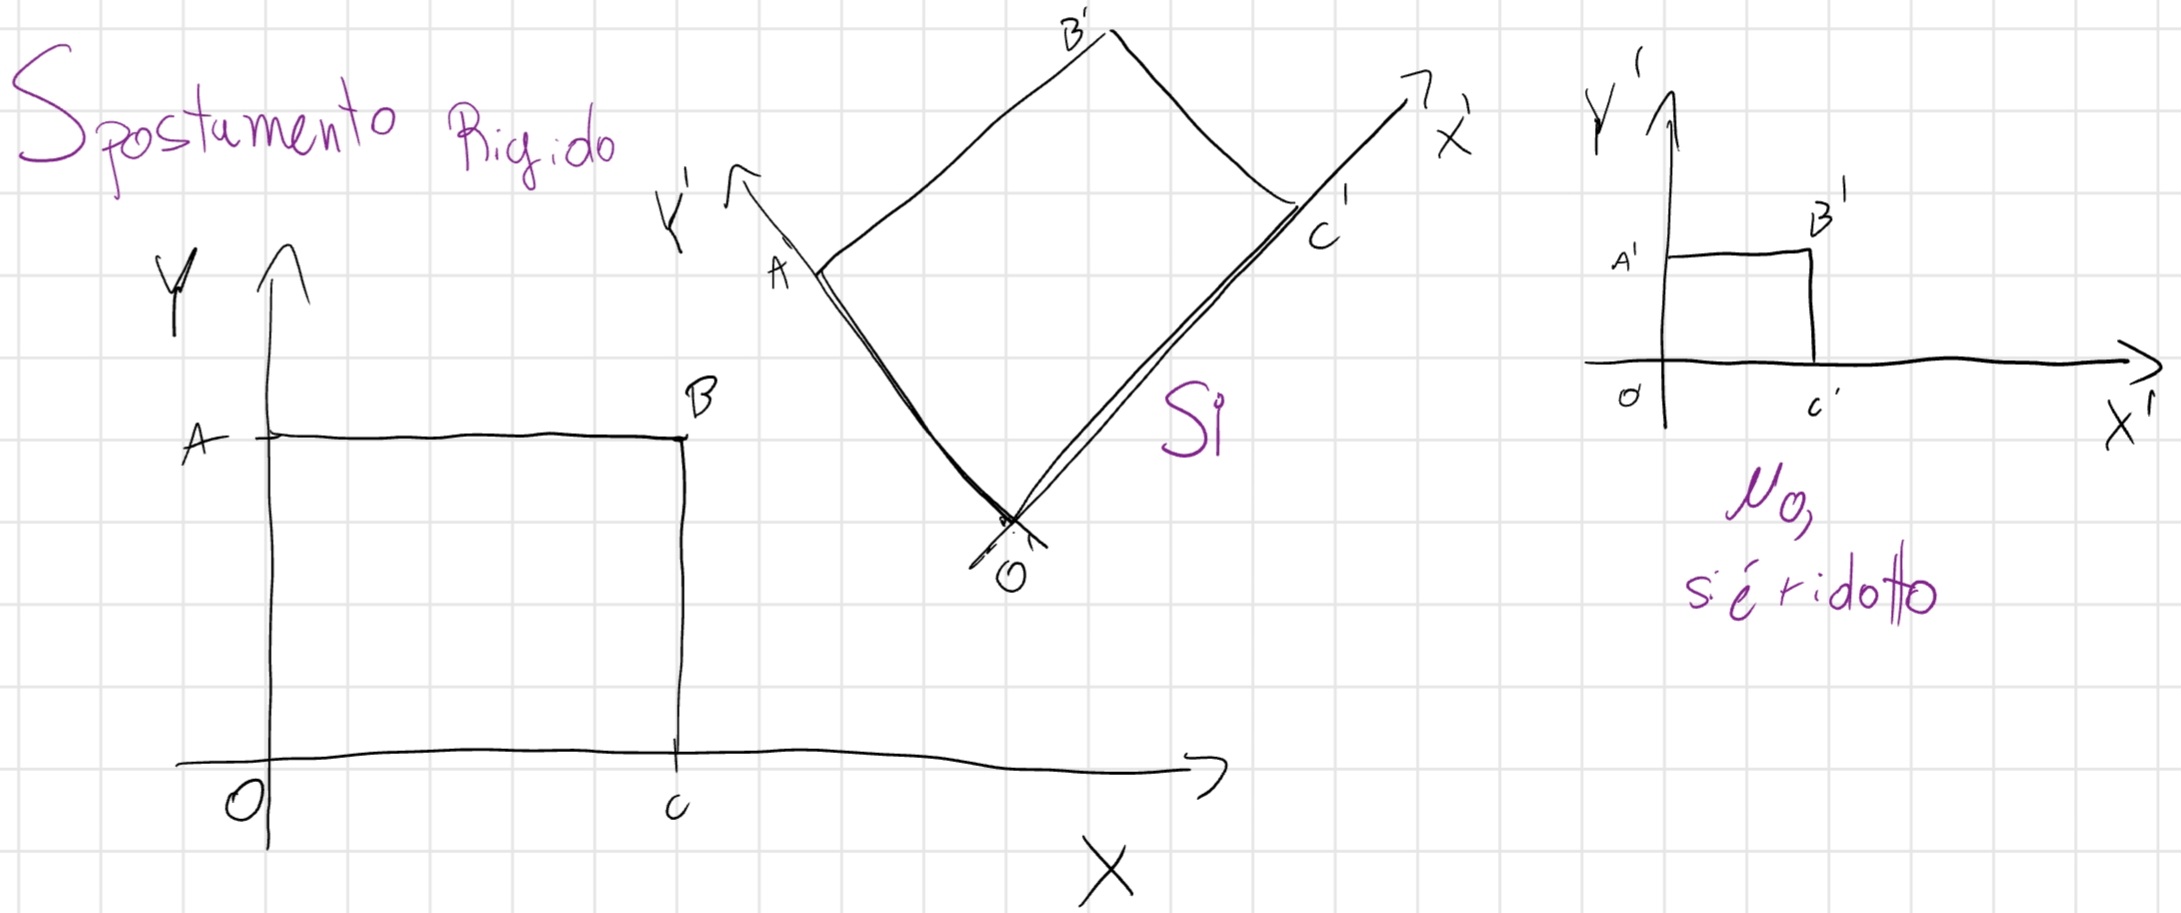 Spostamento Rigido
Y
A
B
O
C
X
Y'
A
B'
C'
X'
O'
Si
Y'
A'
B'
O'
C'
X'
No,
si é ridotto